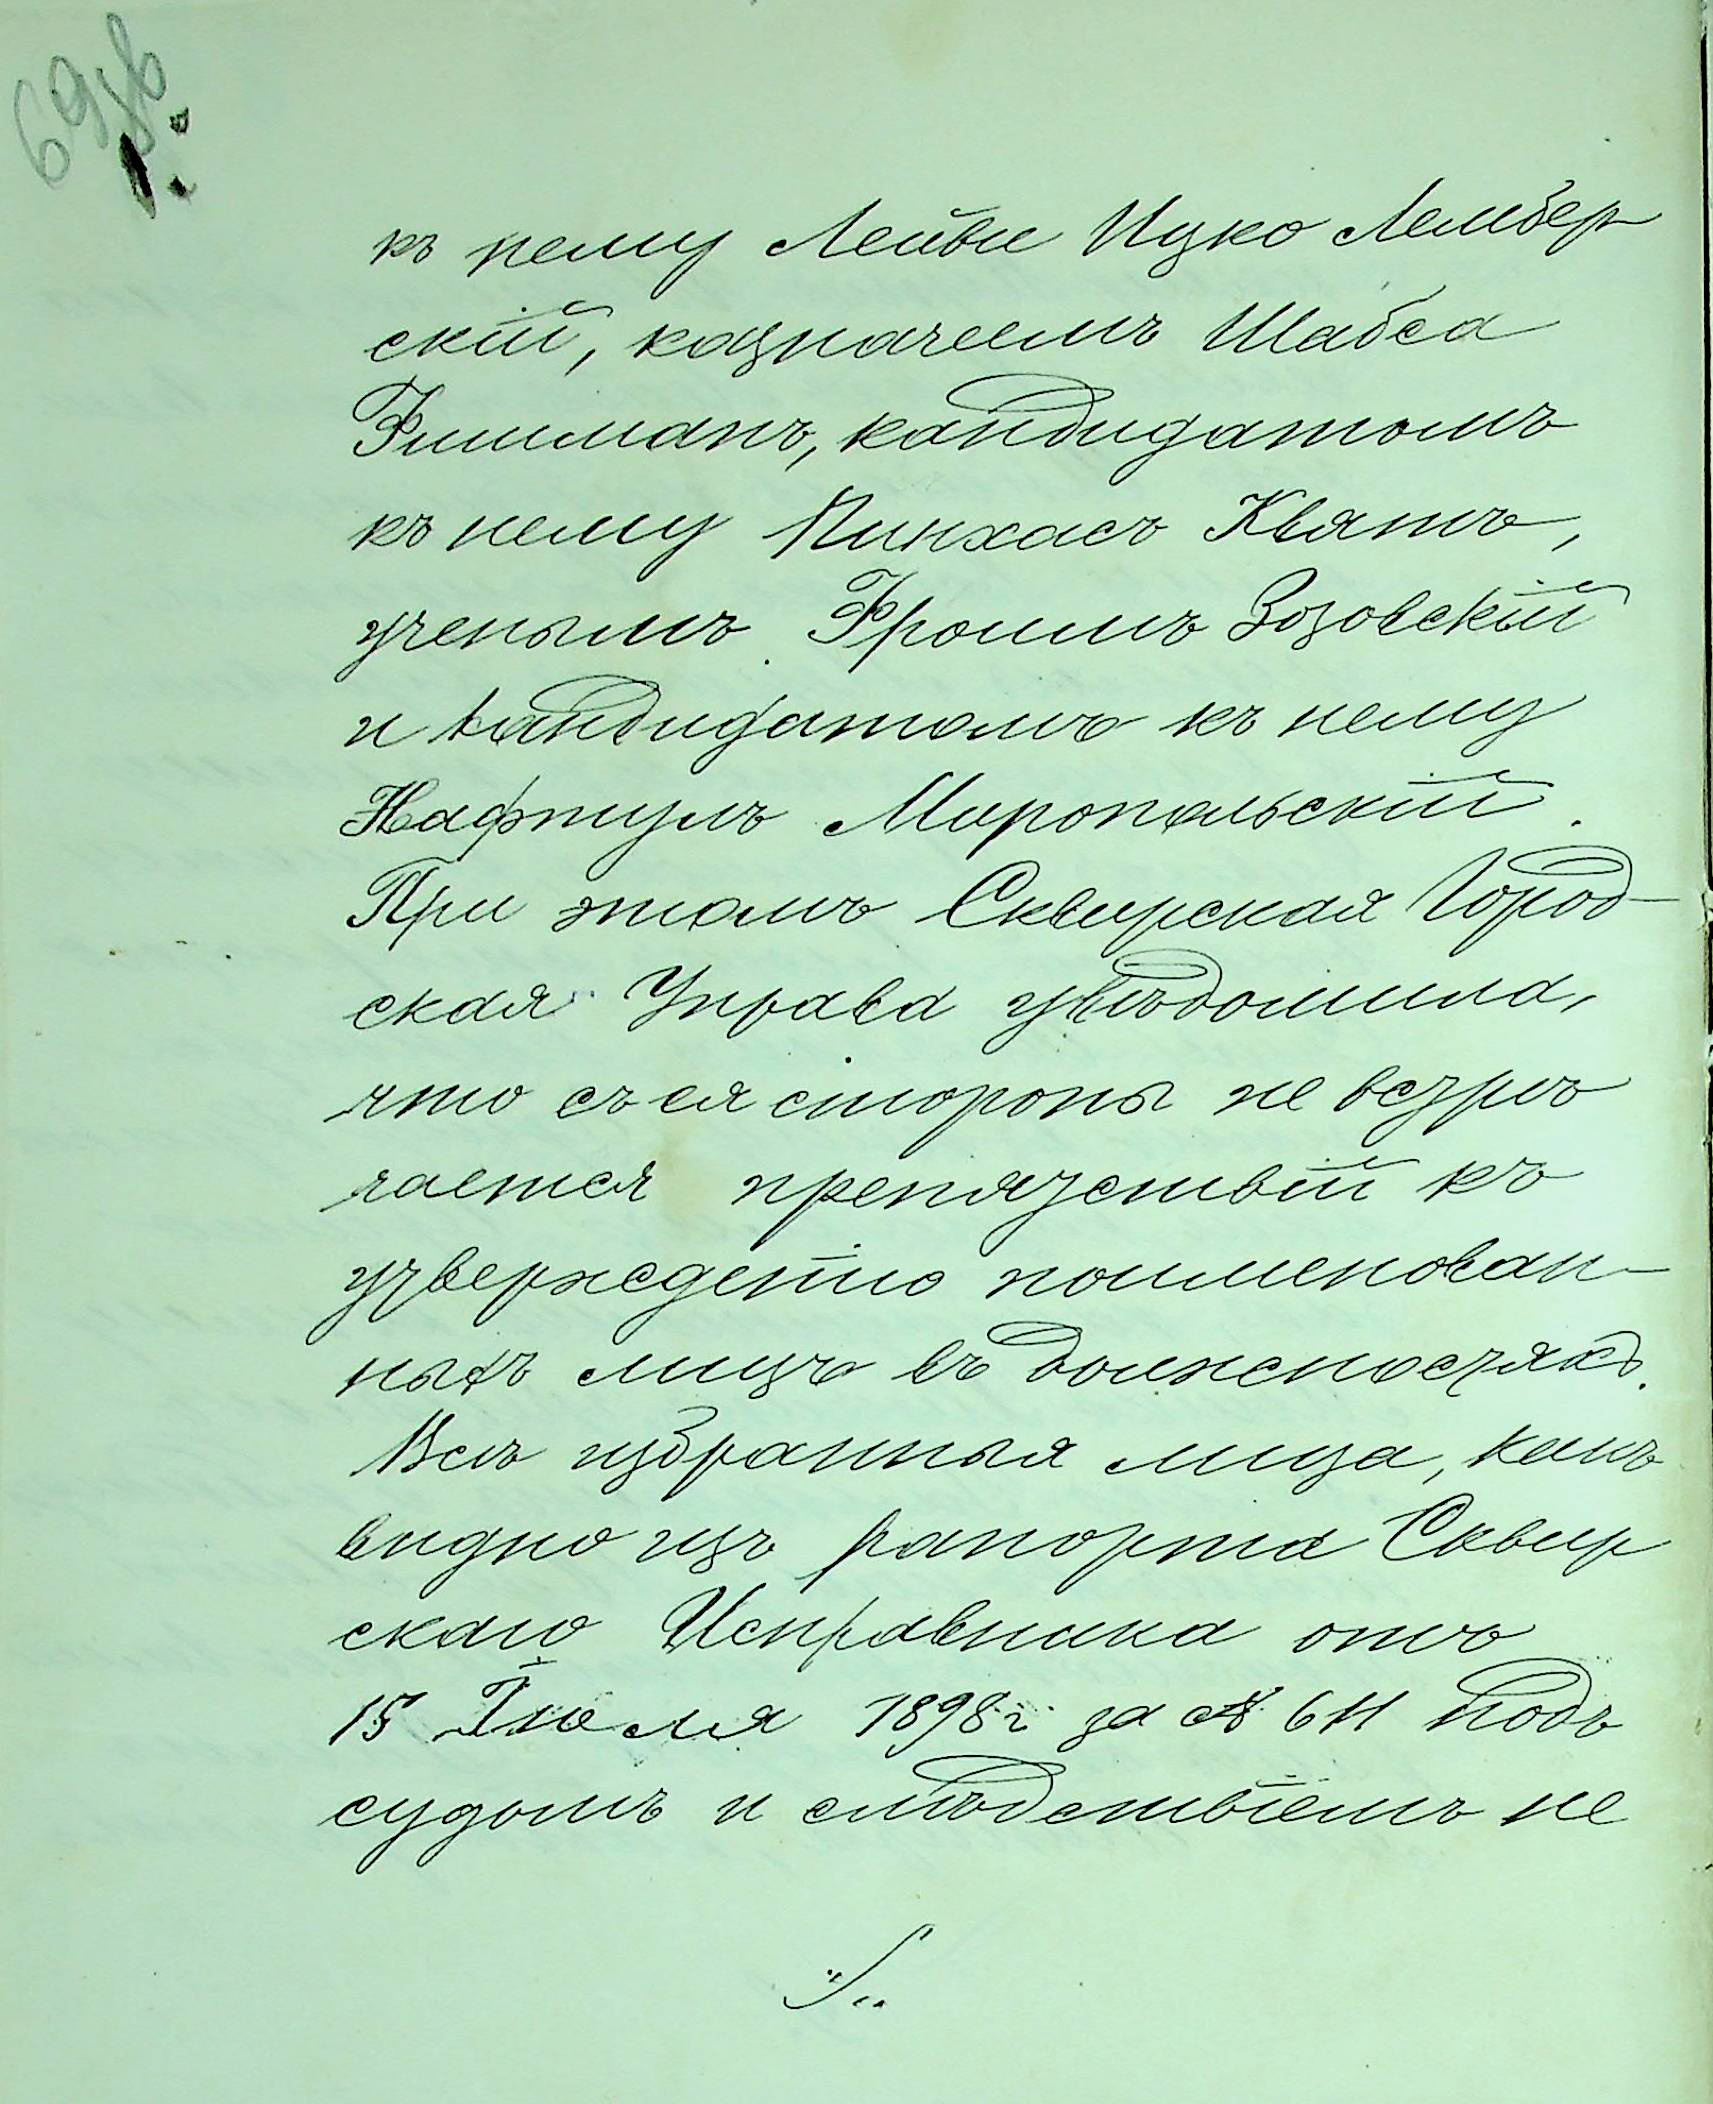 69 об
къ нему Лейви Ицко Лембер
скій, казначеемъ Шабса
Фишманъ, кандидатомъ
къ нему Пинхасъ Квятъ,
ученымъ Фроимъ Зозовскій
и кандидатомъ къ нему
Нафтулъ Миропольскій.
При этомъ Сквирская Город-
ская Управа увѣдомила,
что съ ея стороны не встрѣ
чается препятствій къ
утвержденію поименован-
ныхъ лицъ въ должностяхъ.
Всѣ избранныя лица, какъ
видно изъ рапорта Сквир
скаго Исправника отъ
15 Іюля 1898 г. за № 611 подъ
судомъ и слѣдствіемъ не